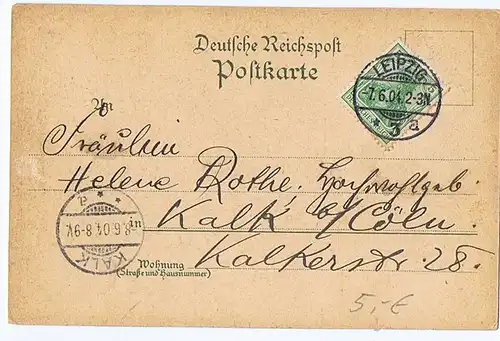 Deutsche Reichspost
Postkarte
LEIPZIG
-7.6.04.2-3N
* 3 a
An
Fräulein
Helene Rothe, Hochwohlgeb.
in Kalk b/Cöln.
Kalkerstr. 28.
Wohnung
(Straße und Hausnummer)
8.6.04.8-9V.
KALK
5,-€